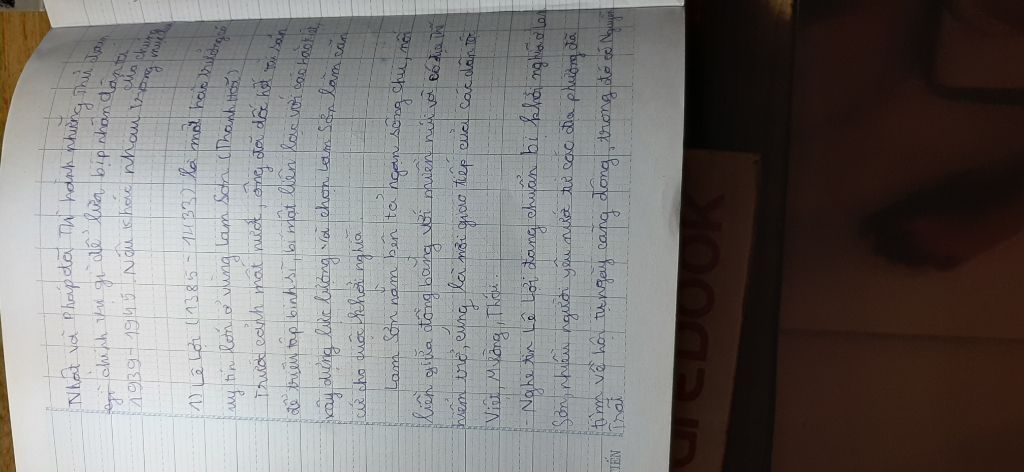 Nhật và Pháp đã thi hành những thủ đoạn
chính trị gì để lừa bịp nhân dân ta
1939-1945. Nêu khác nhau trong của chúng
1) Lê Lợi (1385-1433) là một hào trưởng có
uy tín lớn ở vùng Lam Sơn (Thanh Hoá)
Trước cảnh mất nước, ông đã dốc hết tài sản
để triệu tập binh sĩ, bí mật liên lạc với các hào kiệt,
xây dựng lực lượng và chọn Lam Sơn làm căn
cứ cho cuộc khởi nghĩa.
Lam Sơn nằm bên tả ngạn sông Chu, nối
liền giữa đồng bằng với miền núi và có địa thế
hiểm trở, cũng là nơi giao tiếp của các dân tộc
Việt, Mường, Thái.
- Nghe tin Lê Lợi đang chuẩn bị khởi nghĩa ở Lam
Sơn, nhiều người yêu nước từ các địa phương đã
tìm về hội tụ ngày càng đông, trong đó có Nguyễn
Trãi
areBOOK
YẾN